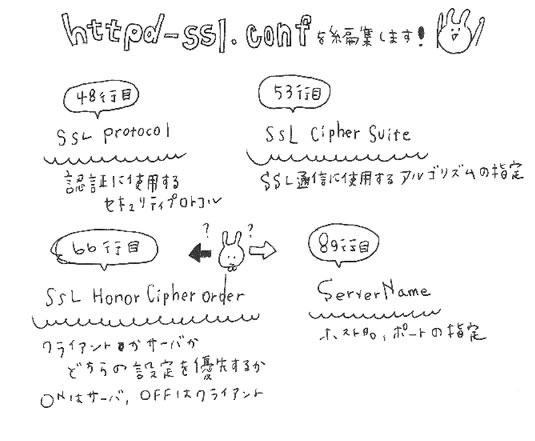 httpd-ssl.confを編集します!
48行目
SSL Protocol
認証に使用する
セキュリティプロトコル
53行目
SSL Cipher Suite
SSL通信に使用するアルゴリズムの指定
66行目
? ?
SSL Honor Cipher order
クライアントかサーバか
どちらの設定を優先するか
ONはサーバ, OFFはクライアント
89行目
ServerName
ホスト名, ポートの指定